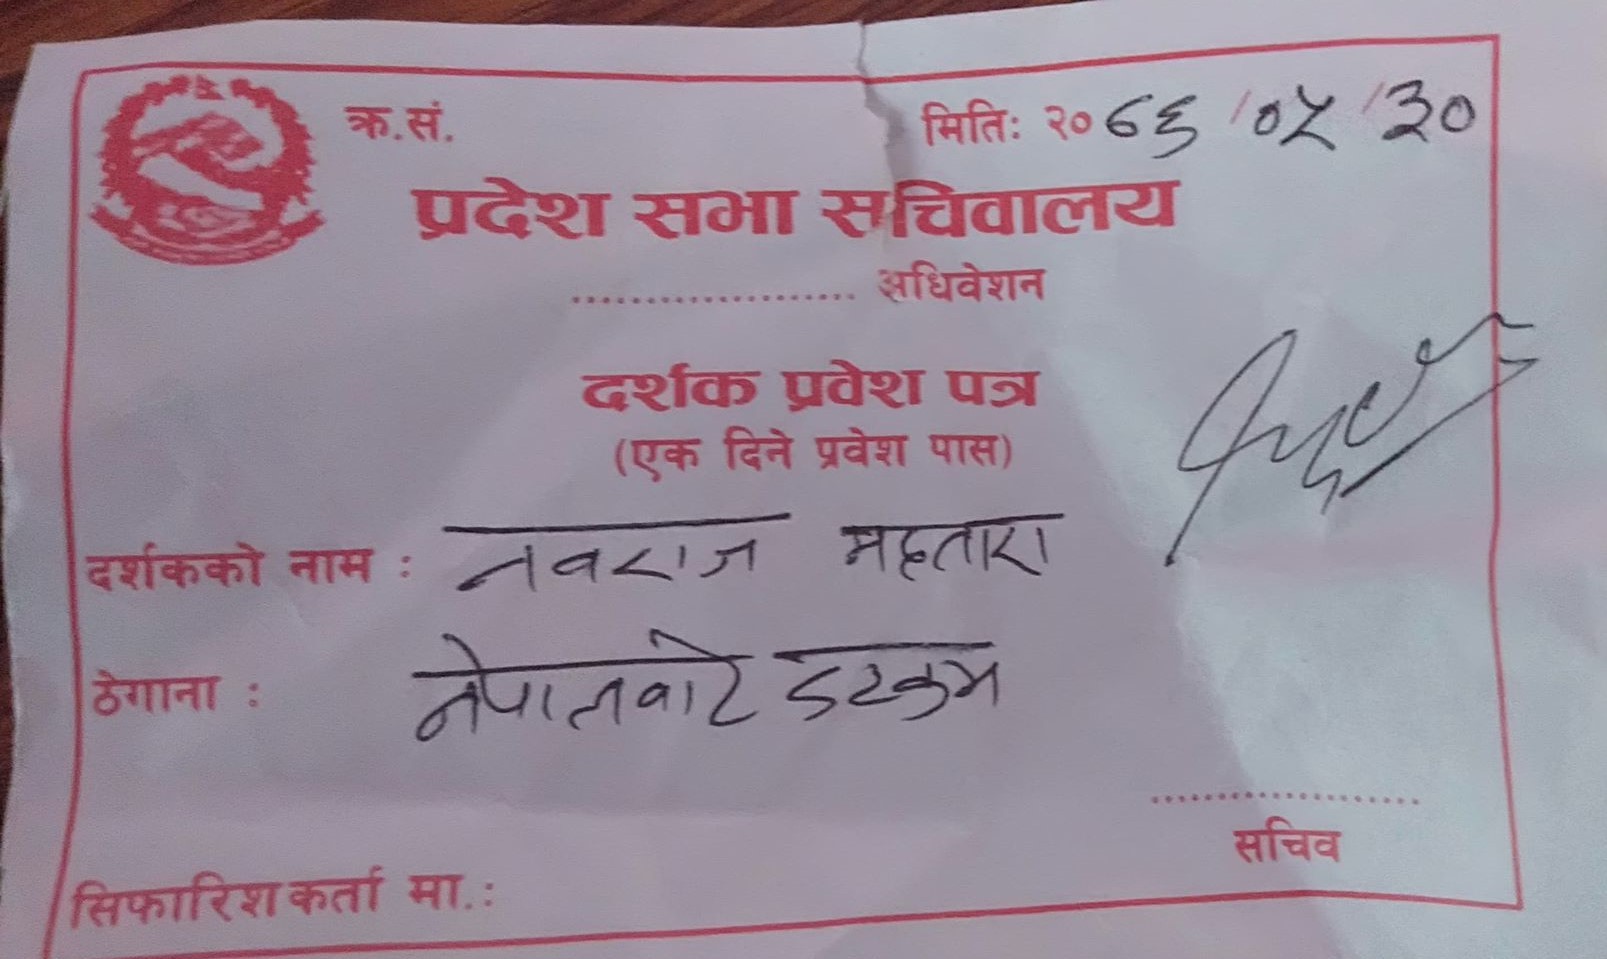 क्र.सं.
मितिः २०७६/०५/३०
प्रदेश सभा सचिवालय
................... अधिवेशन
दर्शक प्रवेश पत्र
(एक दिने प्रवेश पास)
दर्शकको नाम : नवराज महतारा
ठेगाना : नेपालवोट डटकम
..................
सचिव
सिफारिशकर्ता मा.: